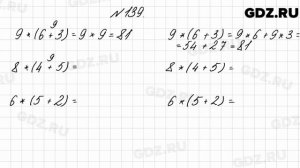 GDZ.RU
№139.
9
9*(6+3)=9*9=81
9*(6+3)=9*6+9*3=
=54+27=81
9
8*(4+5)=
8*(4+5)=
6*(5+2)=
6*(5+2)=
GDZ.RU